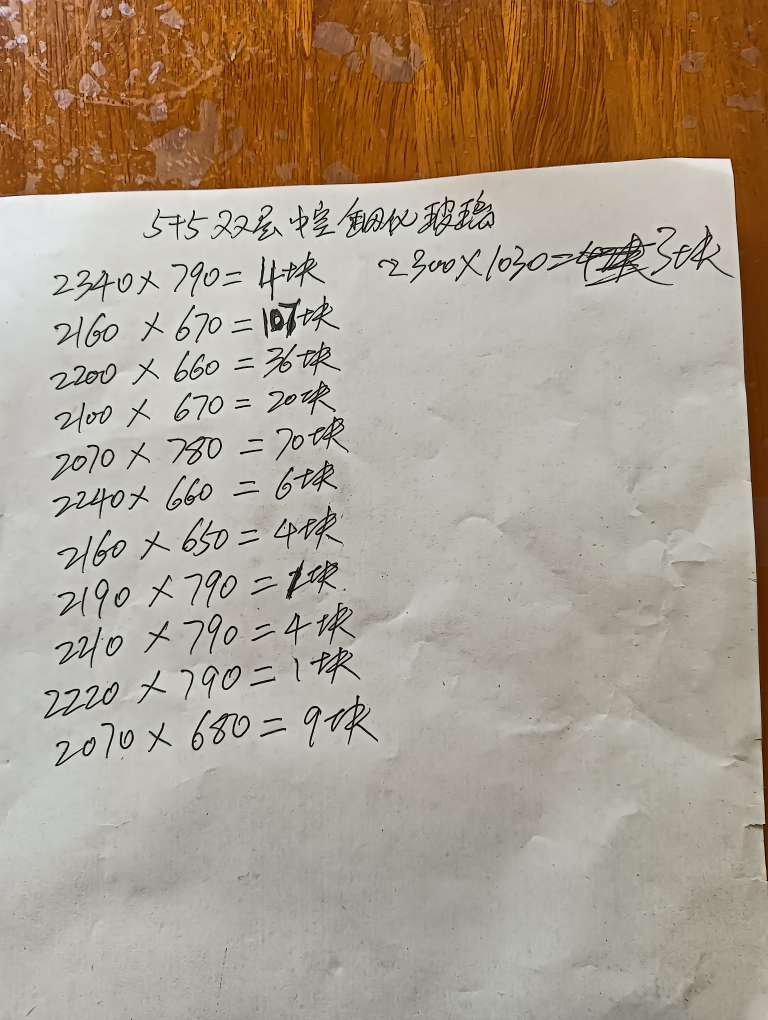 5+5双层中空钢化玻璃
2340×790=4块
2300×1030=3块
2160×670=107块
2200×660=36块
2100×670=20块
2070×780=70块
2240×660=6块
2160×650=4块
2190×790=1块
2210×790=4块
2220×790=1块
2070×680=9块